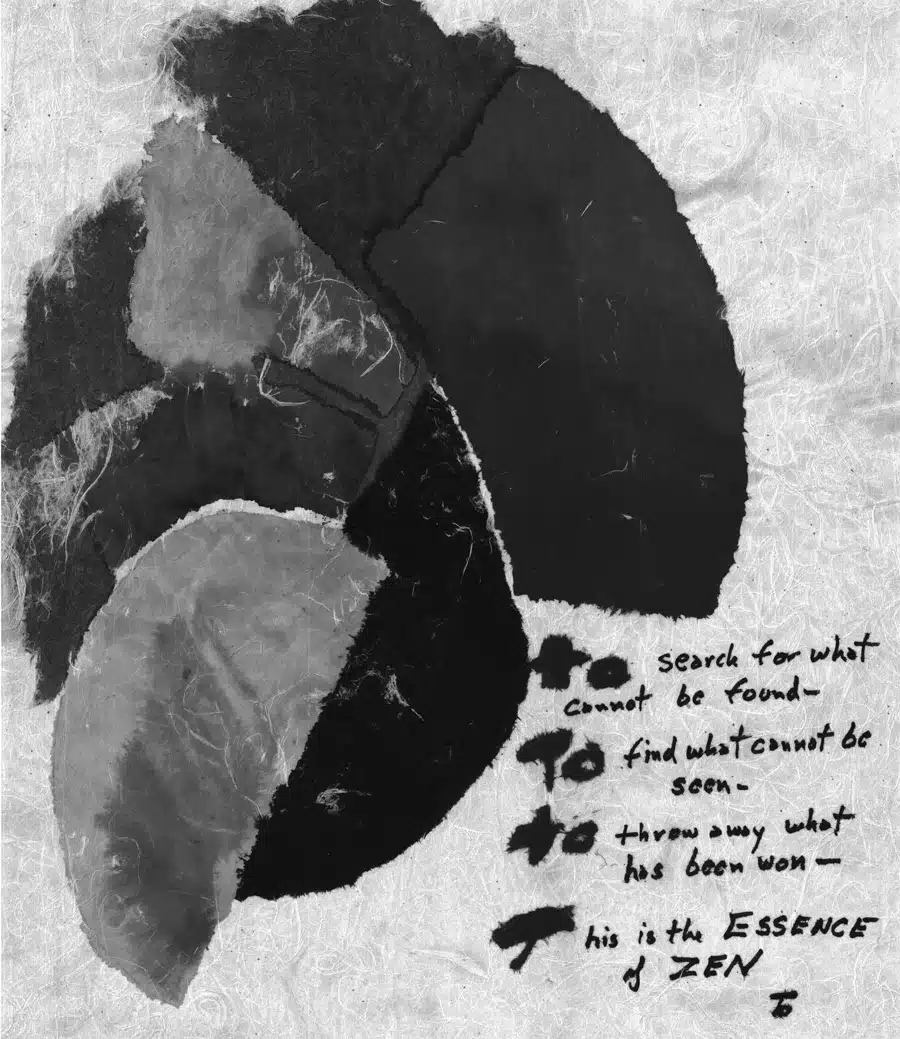 to search for what
cannot be found—
To find what cannot be
seen—
to throw away what
has been won—
This is the ESSENCE
of ZEN